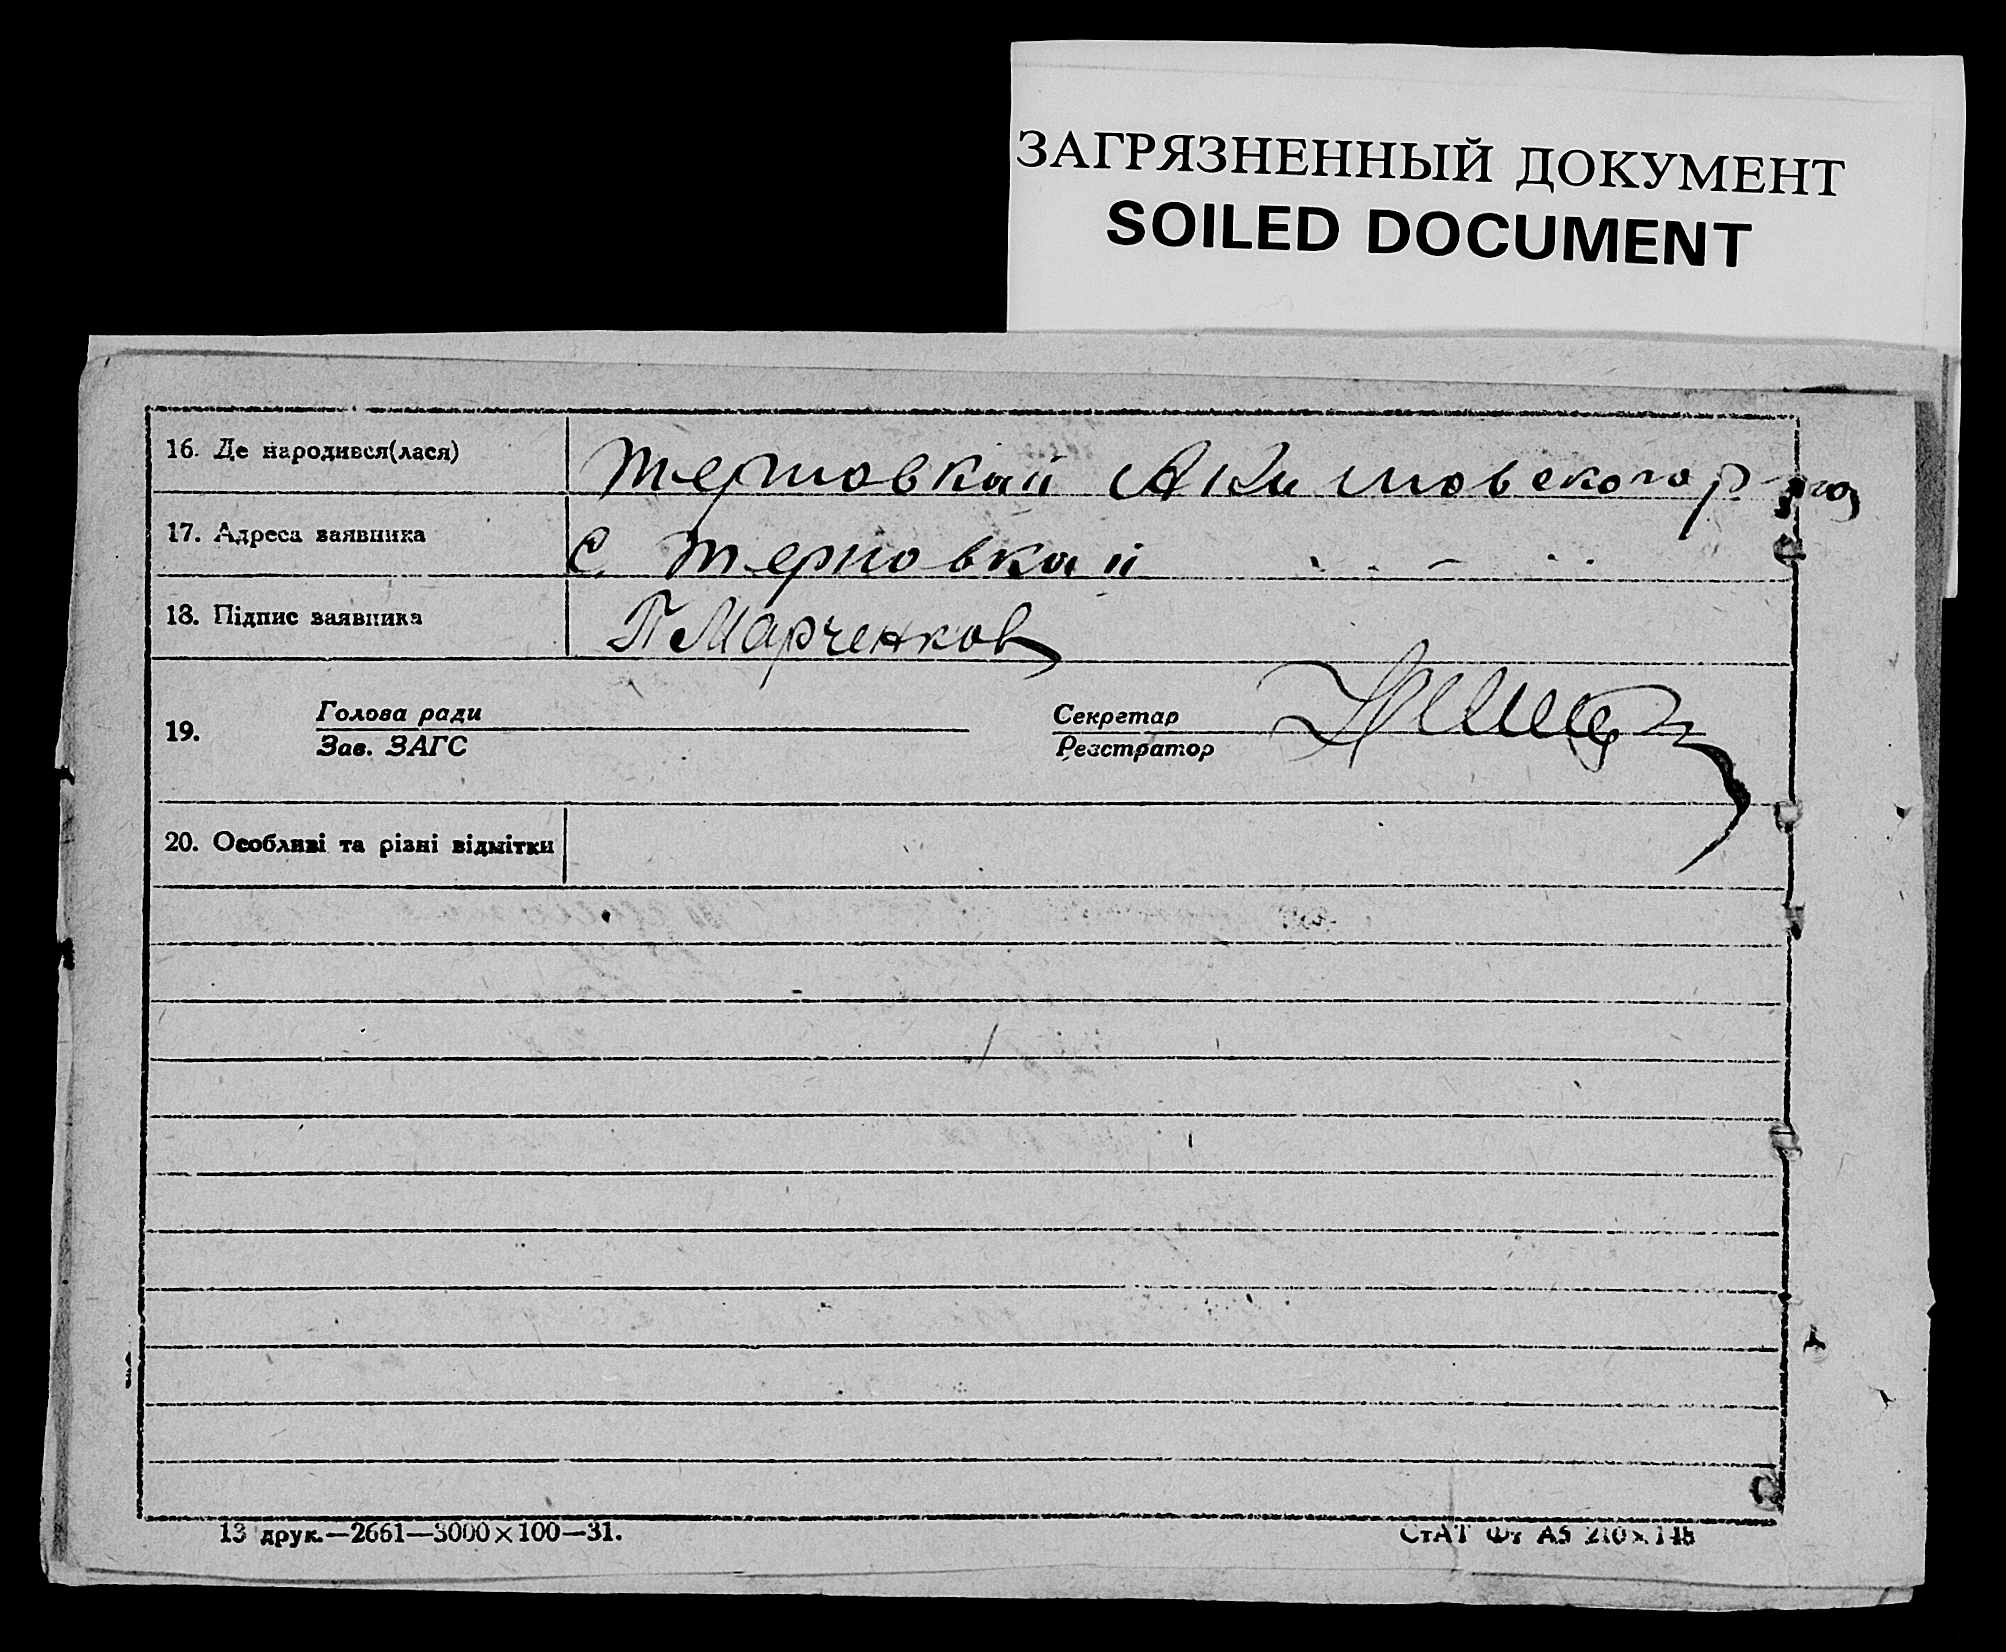 ЗАГРЯЗНЕННЫЙ ДОКУМЕНТ
SOILED DOCUMENT
16. Де народився(лася) Терновкай Акимовского р-на
17. Адреса заявника с Терновкай
18. Підпис заявника П Марченков
19. Голова ради
Зав. ЗАГС
Секретар
Реєстратор
20. Особливі та різні відмітки
13 друк.—2661—3000×100—31.
СтАТ Фт А5 210×148